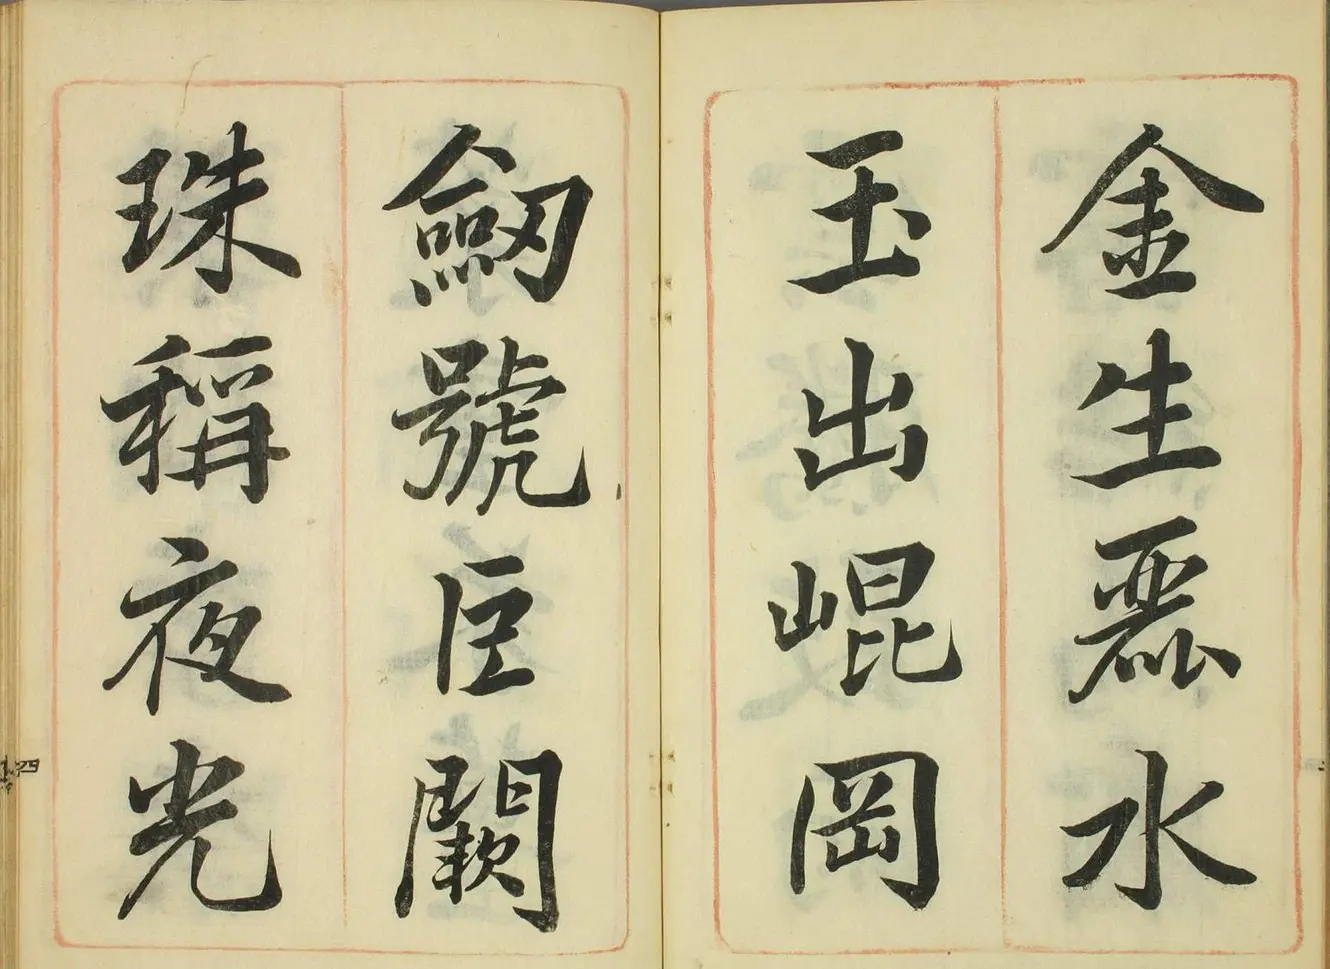 金生麗水
玉出崐岡
劔號巨闕
珠稱夜光